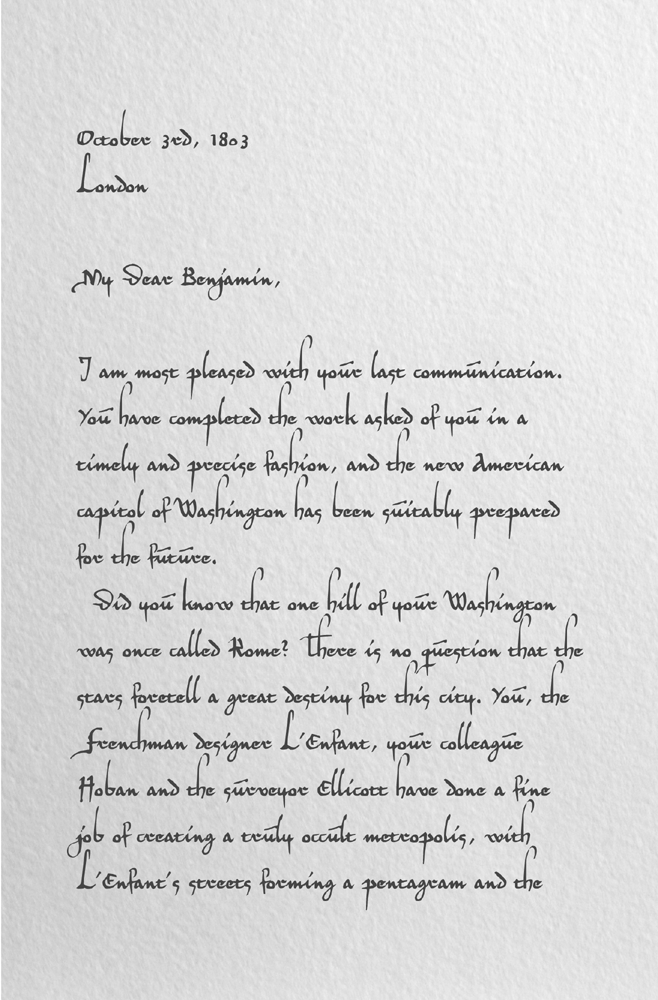 October 3rd, 1803
London
My Dear Benjamin,
I am most pleased with your last communication.
You have completed the work asked of you in a
timely and precise fashion, and the new American
capitol of Washington has been suitably prepared
for the future.
Did you know that one hill of your Washington
was once called Rome? There is no question that the
stars foretell a great destiny for this city. You, the
Frenchman designer L'Enfant, your colleague
Hoban and the surveyor Ellicott have done a fine
job of creating a truly occult metropolis, with
L'Enfant's streets forming a pentagram and the